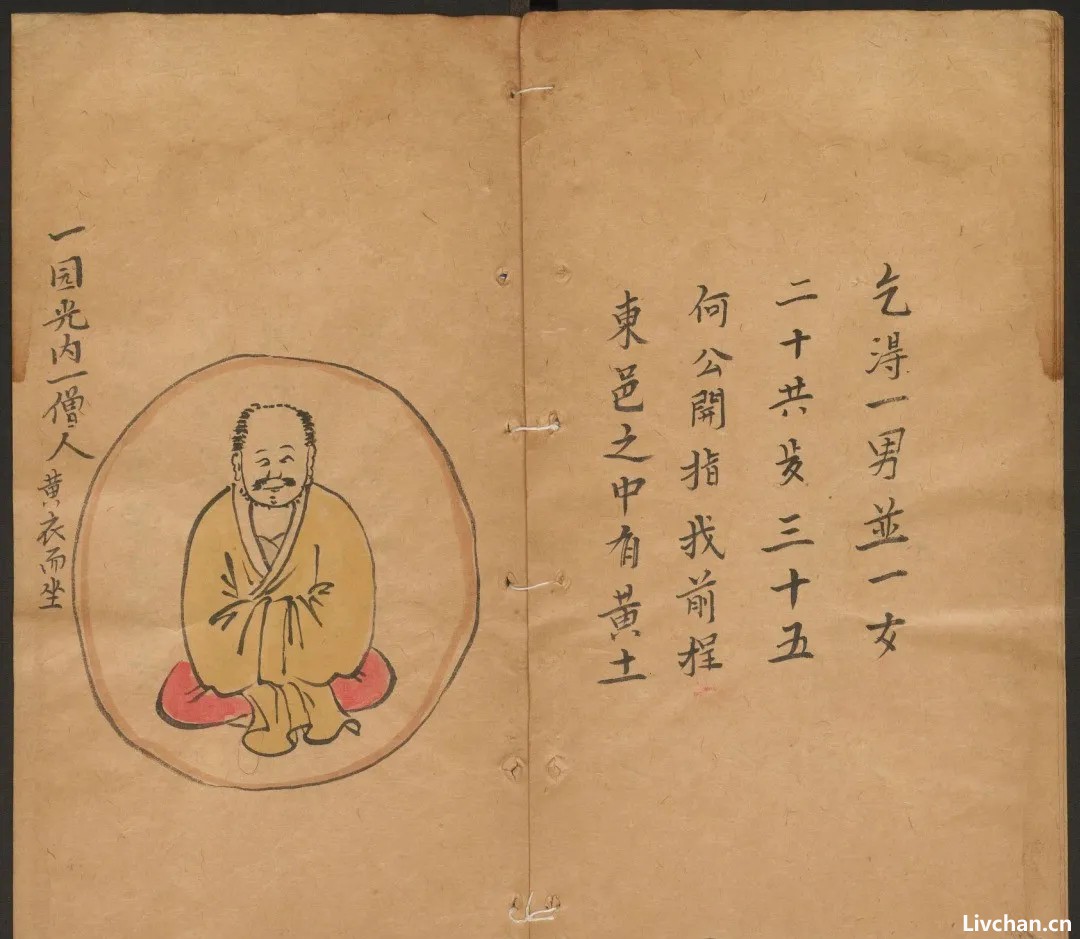 乞得一男並一女
二十共岁三十五
何公開指找前程
東邑之中有黄土
一园光内一僧人黄衣而坐
Livchan.cn